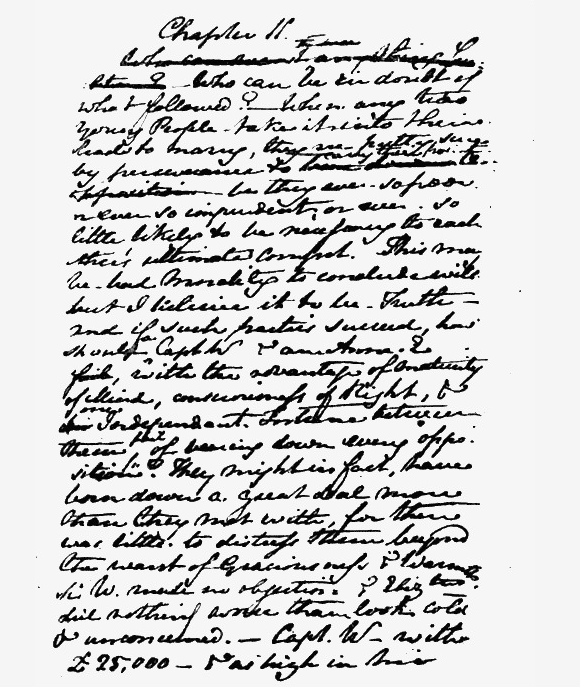 Chapter 11.
Who can be in doubt of
what followed? — When any two
Young People take it into their
heads to marry, they are pretty sure
by perseverance to carry their point —
be they ever so poor,
or ever so imprudent, or ever so
little likely to be necessary to each
other's ultimate comfort. This may
be bad Morality to conclude with,
but I believe it to be Truth —
and if such parties succeed, how
should Capt W & an Anne E
fail, with the advantage of maturity
of Mind, consciousness of Right, &
one Independent Fortune between
them fail of bearing down every oppo-
sition? They might in fact, have
born down a great deal more
than they met with, for there
was little to distress them beyond
the want of Graciousness & Warmth.
Sir W. made no objection, & Eliz:th
did nothing worse than look cold
& unconcerned. — Capt. W — with
£25,000 — & as high in his